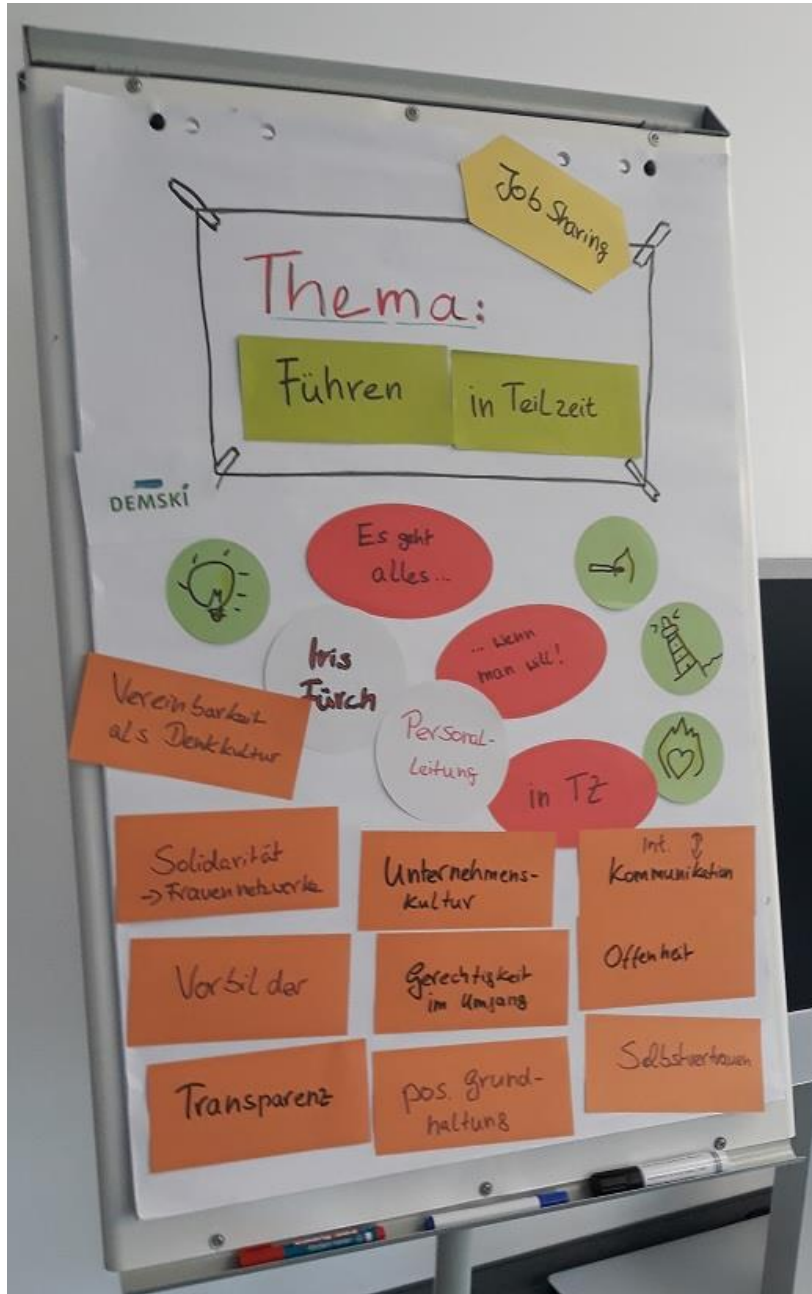 Job Sharing
Thema:
Führen
in Teilzeit
DEMSKI
Es geht
alles...
...wenn
man will!
in TZ
Iris
Fürch
Personal-
leitung
Vereinbarkeit
als Denkkultur
Solidarität
-> Frauennetzwerke
Unternehmens-
kultur
Int.
Kommunikation
Vorbilder
Gerechtigkeit
im Umgang
Offenheit
Transparenz
pos. Grund-
haltung
Selbstvertrauen